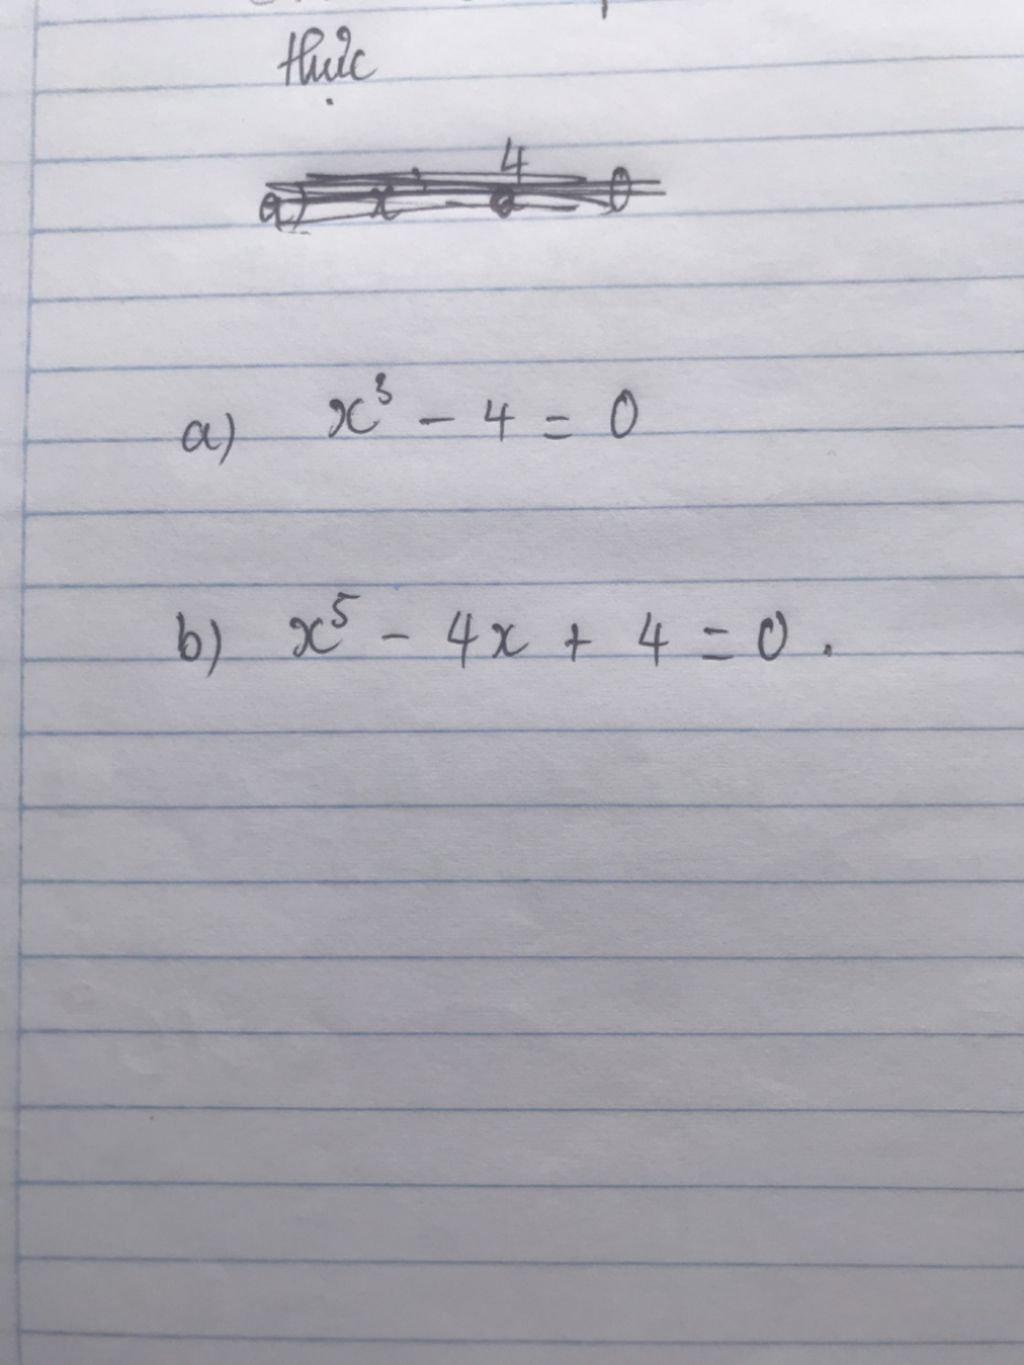 thực
a) x³ - 4 = 0
b) x⁵ - 4x + 4 = 0.